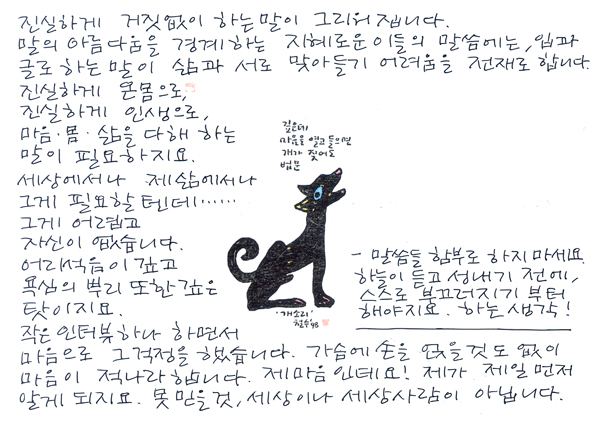 진실하게 거짓없이 하는말이 그리워집니다.
말의 아름다움을 경계하는 지혜로운이들의 말씀에는, 입과
글로하는말이 삶과 서로 맞아들기 어려움을 전재로합니다.
진실하게 온몸으로,
진실하게 인생으로,
마음·몸·삶을다해 하는
말이 필요하지요.
세상에서나 제삶에서나
그게 필요할텐데……
그게 어렵고
자신이 없습니다.
어리석음이 깊고
욕심의 뿌리 또한 깊은
탓이지요.
작은인터뷰하나 하면서
마음으로 그걱정을 했습니다. 가슴에 손을 얹을것도 없이
마음이 적나라합니다. 제마음인데요! 제가 제일먼저
알게 되지요. 못믿을것, 세상이나 세상사람이 아닙니다.
깊은데
마음을 열고 들으면
개가 짖어도
법문
'개소리'
철수 '98
- 말씀들 함부로 하지마세요.
하늘이 듣고 성내기 전에,
스스로 부끄러지기 부터
해야지요. 하는생각!